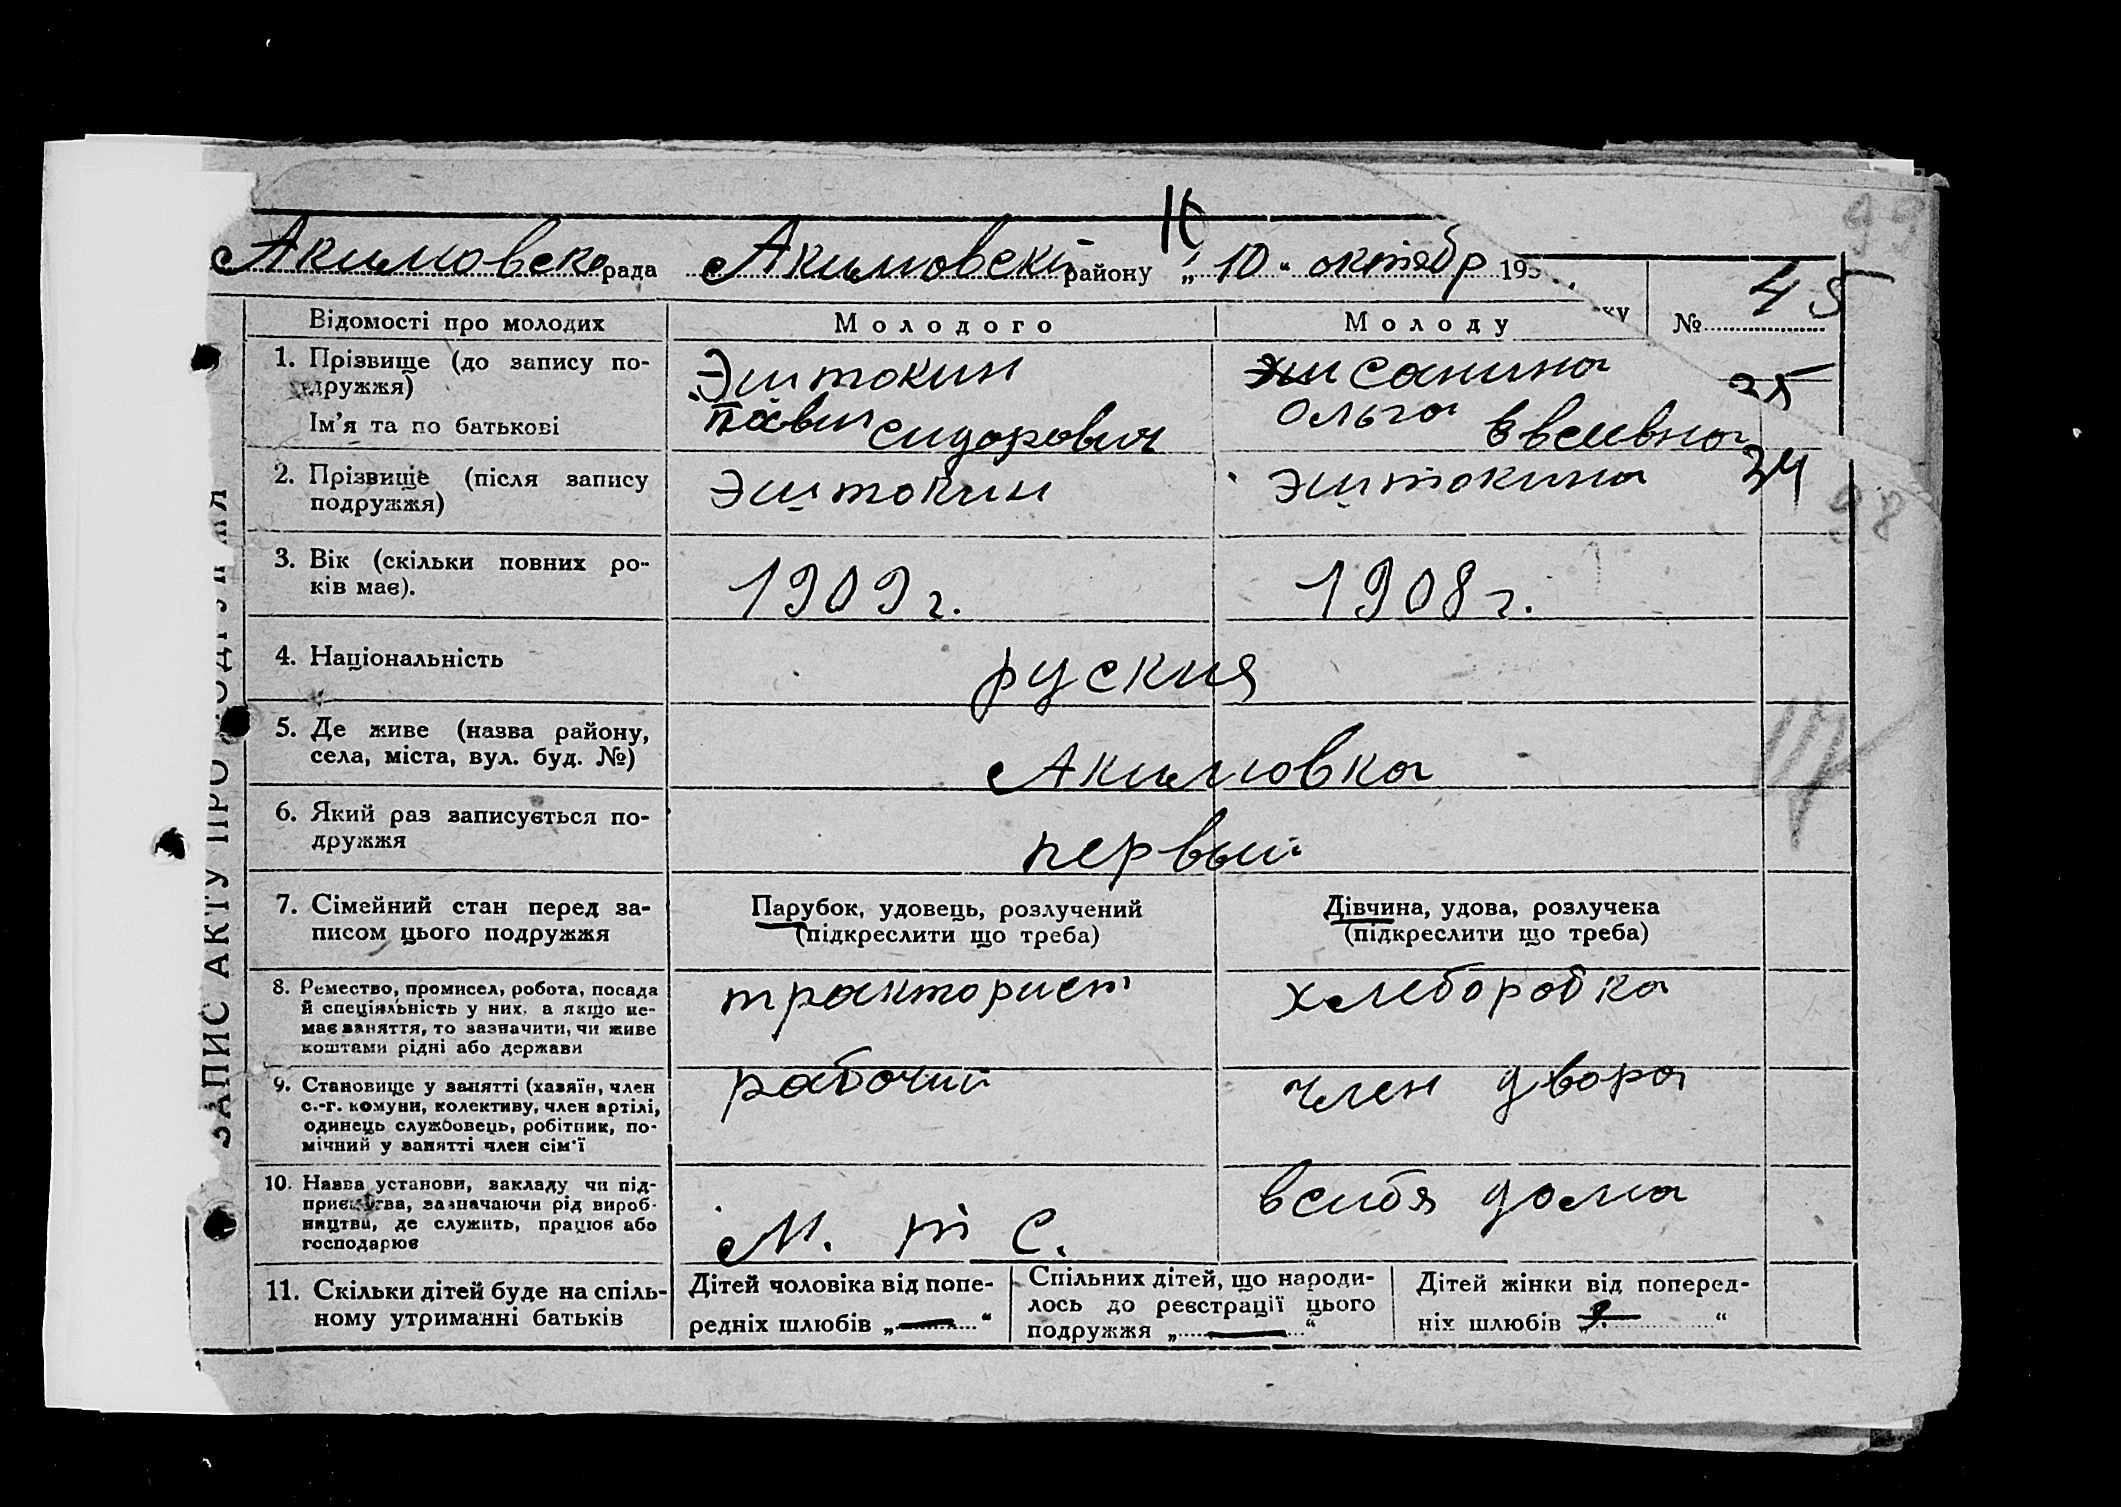 11
Акимовско рада Акимовскій району „ 10 " октябр 193
93
Відомості про молодих
Молодого
Молоду
ку
№ 45
1. Прізвище (до запису по-
дружжя)
Ім'я та по батькові
Эштокин
Павил Сидорович
Эш Санина
Ольга Евсевна
35
2. Прізвище (після запису
подружжя)
Эштокин
Эштокина
34
98
3. Вік (скільки повних ро-
ків має).
1909 г.
1908 г.
4. Національність
руския
5. Де живе (назва району,
села, міста, вул. буд. №)
Акимовка
6. Який раз записується по-
дружжя
первый
7. Сімейний стан перед за-
писом цього подружжя
Парубок, удовець, розлучений
(підкреслити що треба)
Дівчина, удова, розлучена
(підкреслити що треба)
8. Ремество, промисел, робота, посада
й спеціяльність у них, а якщо не-
має заняття, то зазначити, чи живе
коштами рідні або держави
тракторист
хлеборобка
9. Становище у занятті (хазяїн, член
с.-г. комуни, колективу, член артілі,
одинець службовець, робітник, по-
мічний у занятті член сім'ї
рабочий
член двора
10. Назва установи, закладу чи під-
приємства, зазначаючи рід вироб-
ництва, де служить, працює або
господарює
М. Т С.
всибя дома
11. Скільки дітей буде на спіль-
ному утриманні батьків
Дітей чоловіка від попе-
редніх шлюбів „ — "
Спільних дітей, що народи-
лось до реєстрації цього
подружжя „ — "
Дітей жінки від поперед-
ніх шлюбів „ "
ЗАПИС АКТУ ПРО ПОДРУЖЖЯ